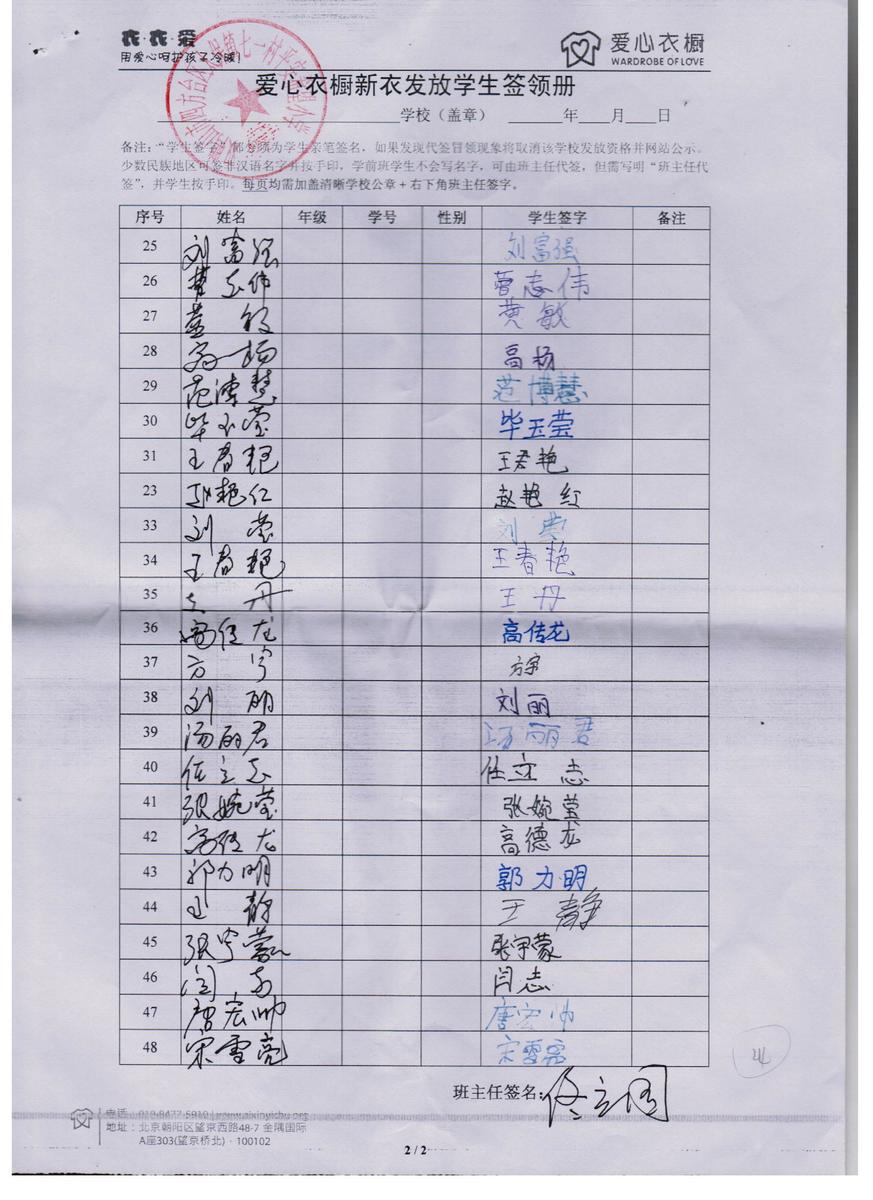 衣·衣·爱
用爱心呵护孩子冷暖!
爱心衣橱
WARDROBE OF LOVE
爱心衣橱新衣发放学生签领册
学校（盖章） 年 月 日
备注：“学生签字”都必须为学生亲笔签名，如果发现代签冒领现象将取消该学校发放资格并网站公示。
少数民族地区可签非汉语名字并按手印，学前班学生不会写名字，可由班主任代签，但需写明“班主任代
签”，并学生按手印。每页均需加盖清晰学校公章+右下角班主任签字。
序号 姓名 年级 学号 性别 学生签字 备注
25 刘富强 刘富强
26 曹志伟 曹志伟
27 黄敏 黄敏
28 高杨 高杨
29 范博慧 范博慧
30 毕玉莹 毕玉莹
31 王君艳 王君艳
23 赵艳红 赵艳红
33 刘莹 刘莹
34 王春艳 王春艳
35 王丹 王丹
36 高传龙 高传龙
37 方宇 方宇
38 刘丽 刘丽
39 汤丽君 汤丽君
40 任立志 任立志
41 张婉莹 张婉莹
42 高德龙 高德龙
43 郭力明 郭力明
44 王静 王静
45 张宇蒙 张宇蒙
46 闫志 闫志
47 唐宏帅 唐宏帅
48 宋雪亮 宋雪亮
班主任签名：佟立国
电话：010-8477-5910 | www.aixinyichu.org
地址：北京朝阳区望京西路48-7 金隅国际
A座303(望京桥北)·100102
2 / 2